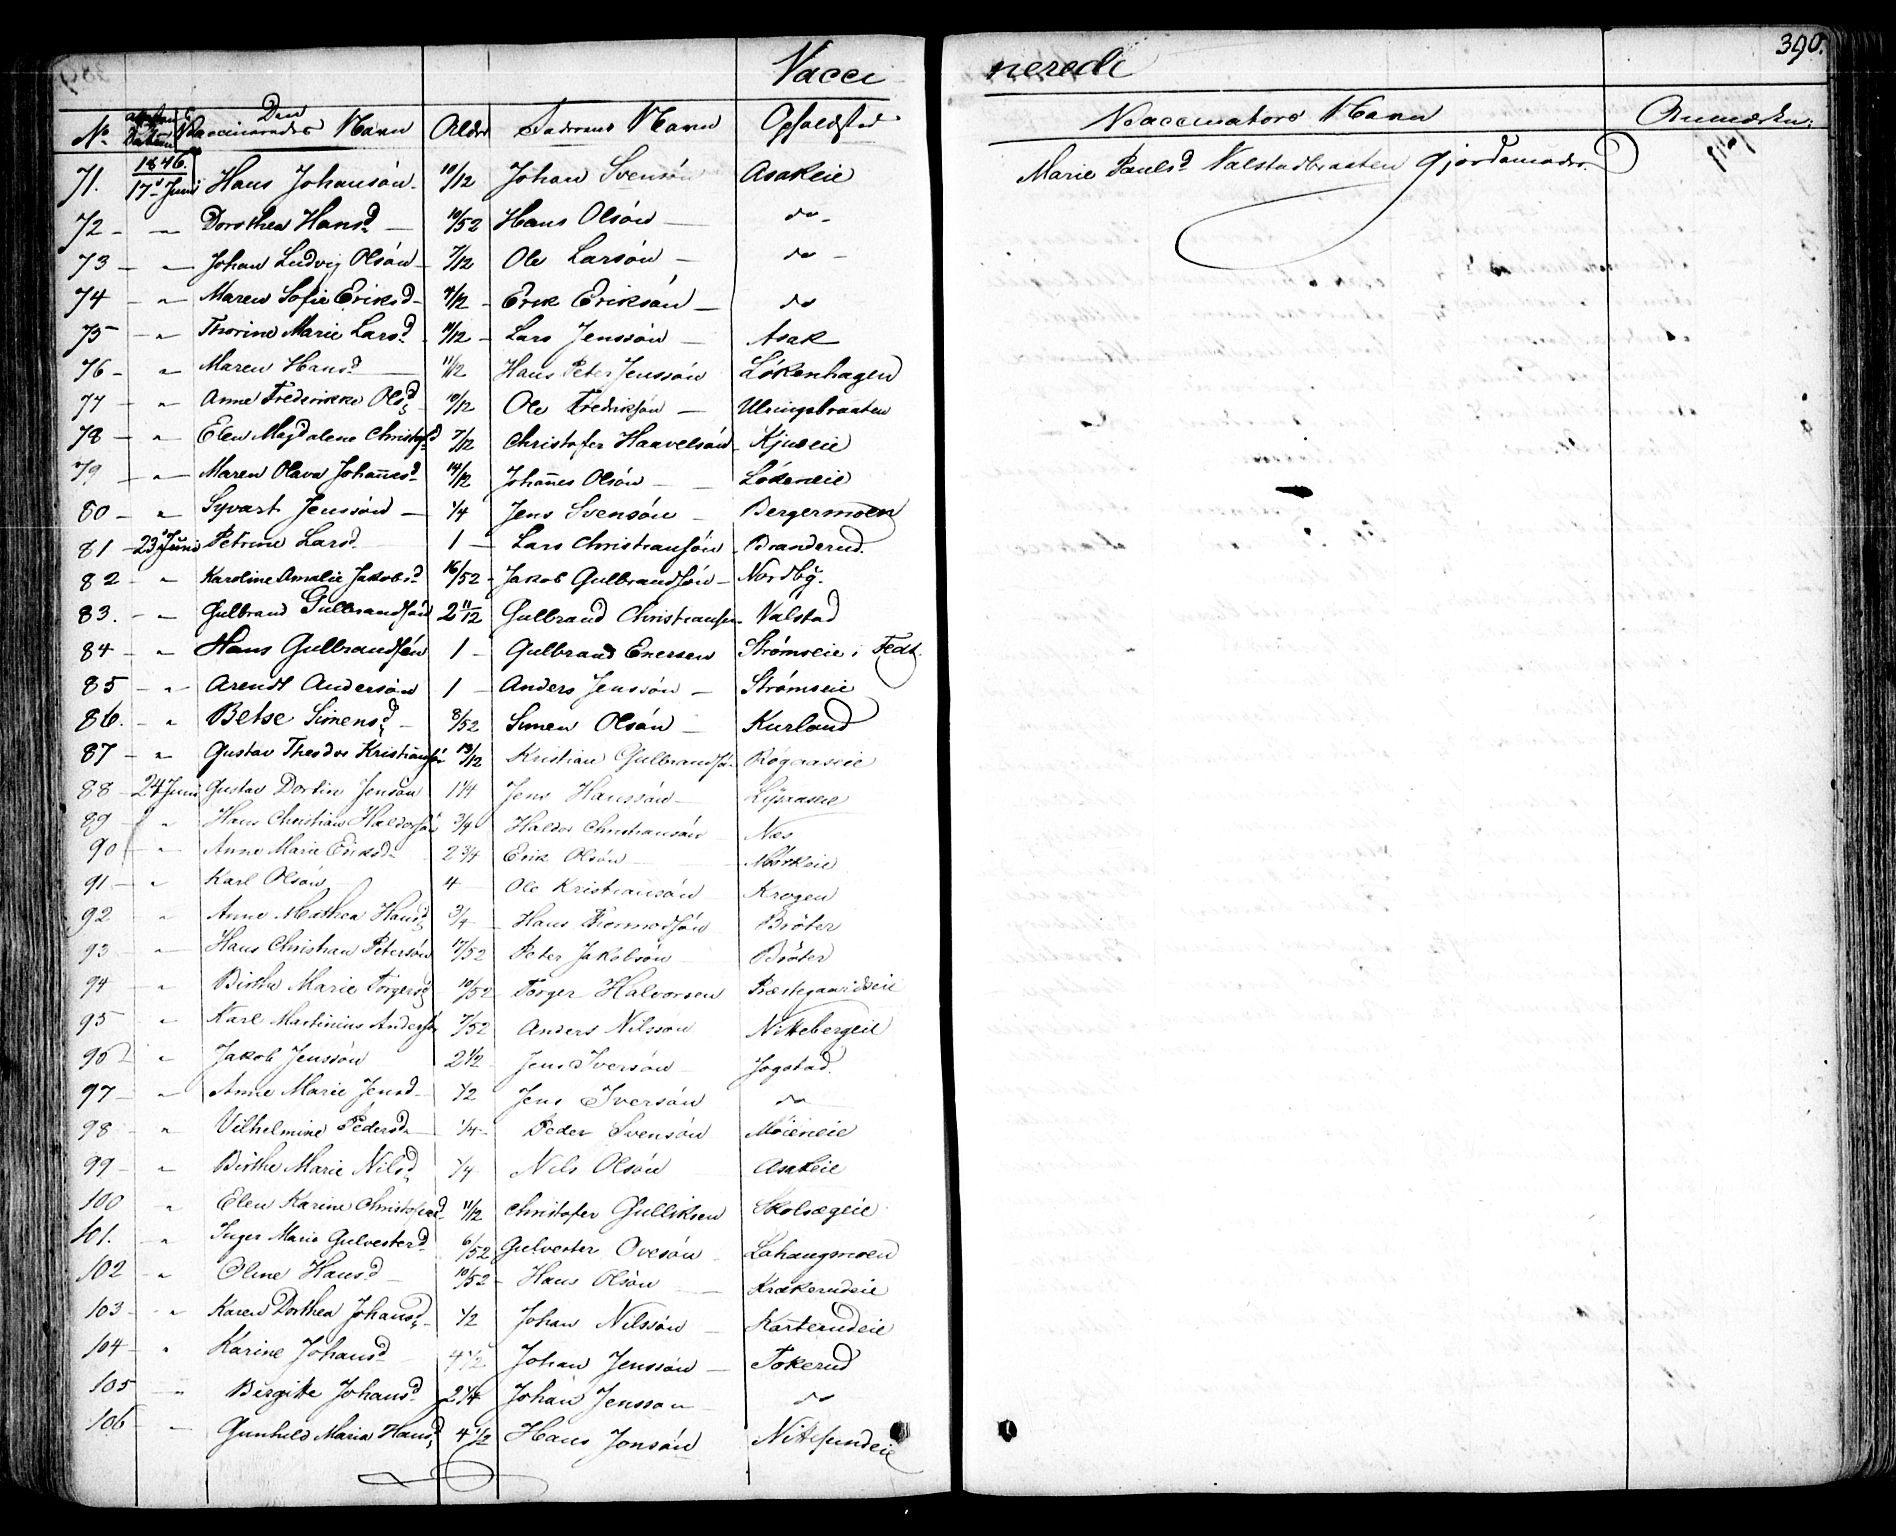 390.
Vaccinerede
No. Attestens Datum Den Vaccineredes Navn Alder Faderens Navn Opholdsted Vaccinators Navn Anmærkn:
71. 1846. 17de Juni Hans Johansön 10/12 Johan Svensön Asakeie Marie Paulsd Valstadbraaten Gjordemoder.
72 - " Dorothea Hansd. 10/52 Hans Olsön - do -
73 - " Johan Ludvig Olsön 7/12 Ole Larsön - do -
74 - " Maren Sofie Eriksd - 4/12 - Erik Eriksön - do
75 - " Thorine Marie Larsd. 11/12 - Lars Jenssön - Asak
76 - " Maren Hansd. 11/12 Hans Peter Jenssön Lökenhagen
77 - " Anne Frederikke Olsd. 10/12 Ole Fredriksön - Ulringsbraaten
78 - " Elen Magdalene Christofd. 7/12 Christofer Haavelsön - Kjuseie
79 - " Maren Olava Johannesd. 14/12 Johannes Olsön - Lökeneie
80 - " Syvart Jenssön - 1/4 Jens Svensön - Bergermoen
81 - 23 Juni Petrine Larsd. 1 - Lars Christiansön - Branderud.
82 - " Karoline Amalie Jakobsd. 16/52 - Jakob Gulbrandsön - Nordby.
83. - " Gulbrand Gulbrandsön 2 11/12 Gulbrand Christiansen - Valstad
84 - " Hans Gulbrandsön 1 - Gulbrand Enersen Strømseie i Fedt.
85 - " Arendt Andersön 1 - Anders Jenssön - Strömseie
86. - " Betse Simensd. - 8/52 Simen Olsön - Kurland
87 - " Gustav Theodor Kristiansön 13/12 Kristian Gulbrandsön - Rögaaseie
88 - 24 Juni Gustav Dortin Jensön 1 1/4 Jens Hanssön - Lysaaseie
89 - " Hans Christian Haldorsön 3/4 Haldor Christiansön Næs
90 " Anne Marie Eriksd - 2 3/4 Erik Olsön - Mörkeie
91 - " Karl Olsön 4 - Ole Kristiansön Krogen
92 " Anne Mathea Hansd. 3/4 - Hans Thormodsön Bröter
93 - " Hans Christian Petersön 17/52 Peter Jakobsön - Bröter
94 " Birthe Marie Torgersd. 10/52 Torger Halvorsen Præstegaardseie
95 - " Karl Martinius Andersön 7/52 Anders Nilssön Nittebergeie
96 " Jakob Jenssön 2 1/2 Jens Iversön - Jogstad.
97 - " Anne Marie Jensd - 1/2 Jens Iversön do
98 - " Vilhelmine Pedersd - 1/4 - Peder Svensön Möieneie
99 - " Birthe Marie Nilsd. 1/4 Nils Olsön Asakeie
100 " Elen Karine Christofersd. 11/12 Christofer Gulliksen Skolsægeie
101. " Inger Marie Gulvesterd. 6/52 Gulvester Ovesön - Lahaugsmoen
102 - " Oline Hansd - 10/52 - Hans Olsön - Krækerudeie
103 - " Karen Dorthea Johansd. 1/2 Johan Nilssön - Karterudeie
104 - " Karine Johansd. 4 1/2 Johan Jenssön - Tokerud
105 - " Birgitte Johansd. 2 1/4 Johan Jensson do
106 - " Gunhild Maria Hansd. 4 1/2 Hans Jonsön